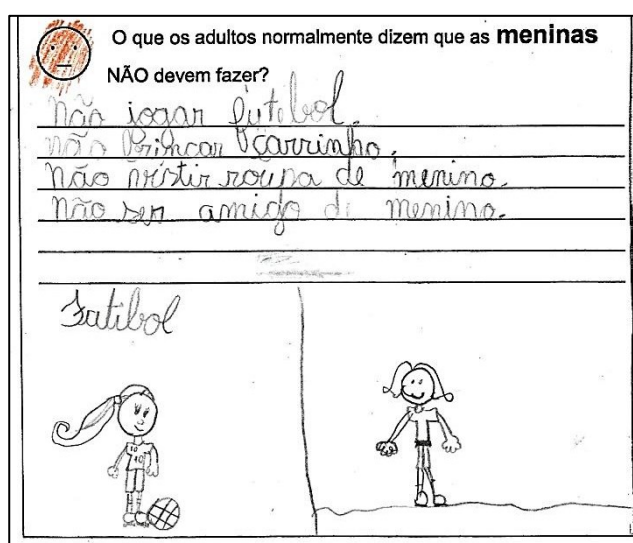 O que os adultos normalmente dizem que as meninas
NÃO devem fazer?
não jogar futebol.
não brincar carrinho.
não vistir roupa de menino.
não ser amigo di menino.
Futibol
10
10